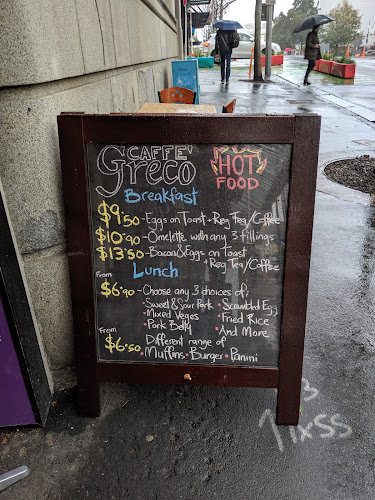 CAFFE'
Greco
HOT
FOOD
Breakfast
$9.50 - Eggs on Toast + Reg Tea/Coffee
$10.90 - Omelette with any 3 fillings
$13.50 - Bacon & Eggs on Toast
+ Reg Tea/Coffee
Lunch
From
$6.90 - Choose any 3 choices of;
• Sweet & Sour Pork • Scrambled Egg
• Mixed Veges • Fried Rice
• Pork Belly • And More
From
$6.50 Different range of
• Muffins • Burger • Panini